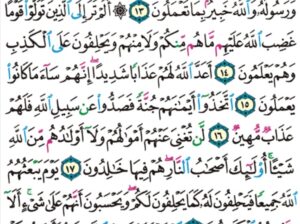 وَرَسُولَهُۥ وَٱللَّهُ خَبِيرٌۢ بِمَا تَعْمَلُونَ ١٣ ۞ أَلَمْ تَرَ إِلَى ٱلَّذِينَ تَوَلَّوْا۟ قَوْمًا
غَضِبَ ٱللَّهُ عَلَيْهِم مَّا هُم مِّنكُمْ وَلَا مِنْهُمْ وَيَحْلِفُونَ عَلَى ٱلْكَذِبِ
وَهُمْ يَعْلَمُونَ ١٤ أَعَدَّ ٱللَّهُ لَهُمْ عَذَابًا شَدِيدًا إِنَّهُمْ سَآءَ مَا كَانُوا۟
يَعْمَلُونَ ١٥ ٱتَّخَذُوٓا۟ أَيْمَٰنَهُمْ جُنَّةً فَصَدُّوا۟ عَن سَبِيلِ ٱللَّهِ فَلَهُمْ
عَذَابٌ مُّهِينٌ ١٦ لَّن تُغْنِىَ عَنْهُمْ أَمْوَٰلُهُمْ وَلَآ أَوْلَٰدُهُم مِّنَ ٱللَّهِ
شَيْـًٔا أُو۟لَٰٓئِكَ أَصْحَٰبُ ٱلنَّارِ هُمْ فِيهَا خَٰلِدُونَ ١٧ يَوْمَ يَبْعَثُهُمُ
ٱللَّهُ جَمِيعًا فَيَحْلِفُونَ لَهُۥ كَمَا يَحْلِفُونَ لَكُمْ وَيَحْسَبُونَ أَنَّهُمْ عَلَىٰ شَىْءٍ أَلَآ